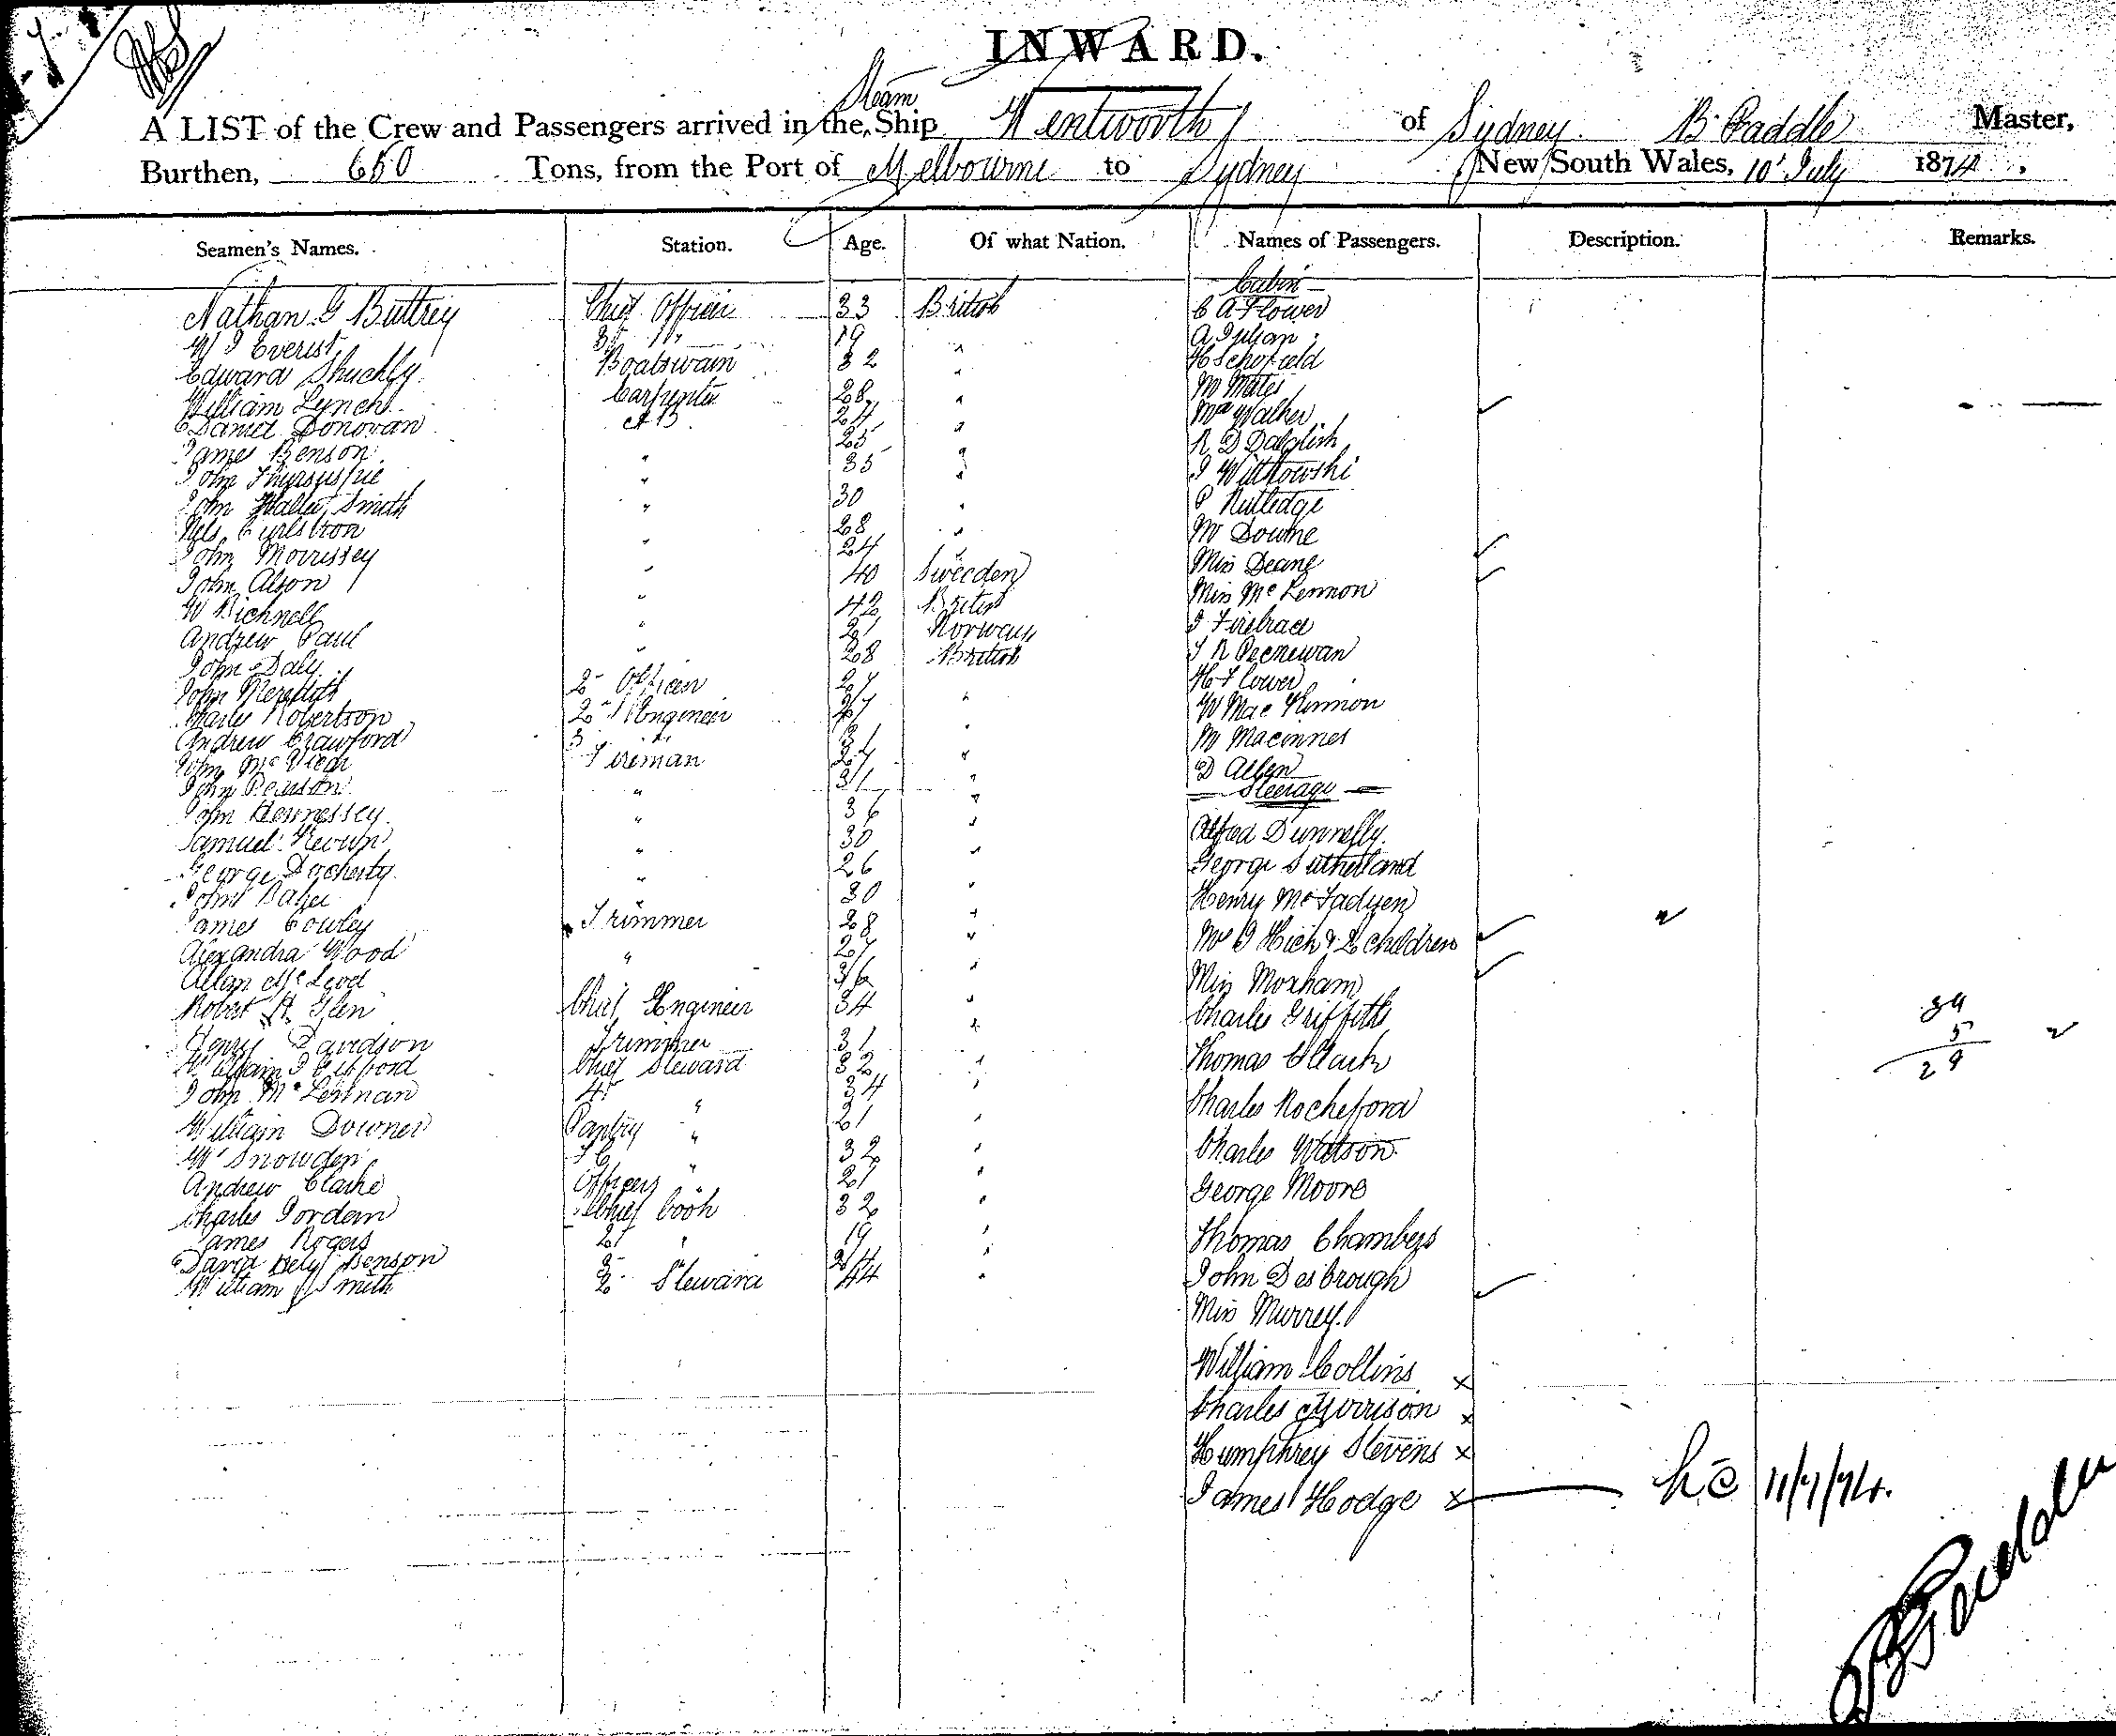 INWARD.
A LIST of the Crew and Passengers arrived in the Steam Ship Wentworth of Sydney B. Paddle Master,
Burthen, 650 Tons, from the Port of Melbourne to Sydney New South Wales, 10' July 1874,
Seamen's Names. Station. Age. Of what Nation. Names of Passengers. Description. Remarks.
Cabin
Nathan G Buttrey Chief Officer 33 British C A Flower
W J Everist 19 " A Julian
Edward Boatswain 32 " H Schofield
William Lynch Carpenter 28 " M
Daniel Donovan AB 24 " Mrs Walker
James Benson " 25 " R D Dalglish
John " 35 " J Witkowski
John Walter Smith " 30 " P Rutledge
Nels " 28 " Mr Downe
John Morrissey " 24 " Miss Deane
John Alson " 40 Sweeden Miss McLennon
W Bicknell " 42 British J Firebrace
Andrew Paul " 21 Norway J R
John Daly " 28 British H Flower
John Meredith 2nd Officer 27 " W Mac Kinnon
Charles Robertson 2nd Engineer " M Macinnes
Andrew Crawford 3 " 31 " D Allen
John Mc Vicar Fireman 27 " Steerage
John Pearson " 31 "
John Hennessey " 36 " Alfred Dunnelly
Samuel Keown " 30 " George Sutherland
George Docherty " 26 " Henry McFadyen
John Baker " 30 "
James Cowley Trimmer 28 " Mrs J Hick & 2 children
Alexandra Wood " 27 " Miss Moxham
Allan McLeod 36 " Charles Griffiths
Robert H. Glen Chief Engineer 34 " Thomas Clark
Henry Davidson Trimmer 31 " Charles Rocheford
William J Gifford Chief Steward 32 " Charles Watson
John McLennan " 34 " George Moore
William Downer Pantry " 21 " Thomas Chambers
W Snowden " 32 " John Desbrough
Andrew Clarke Officers " 21 " Miss Murrey
Charles Jordan Chief Cook 32 " William Collins x
James Rogers 2nd " 19 " Charles Morrison x
David Benson 24 " Humphrey Stevens x
William Smith 2 Steward 44 " James Hodge x
34
5
29
11/7/74.
B Paddle